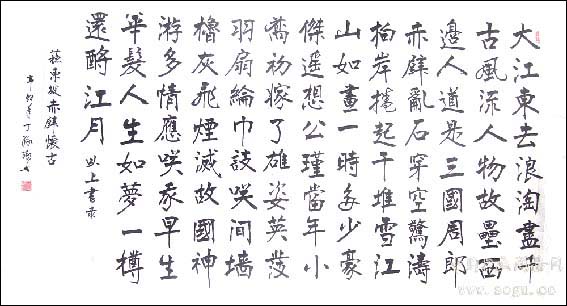 大江東去浪淘盡千
古風流人物故壘西
邊人道是三國周郎
赤壁亂石穿空驚濤
拍岸捲起千堆雪江
山如畫一時多少豪
傑遥想公瑾當年小
喬初嫁了雄姿英發
羽扇綸巾談咲间墙
櫓灰飛煙滅故國神
游多情應咲我早生
華髮人生如夢一樽
還酹江月 以上書录
蘇東坡赤壁懷古
辛卯年丁